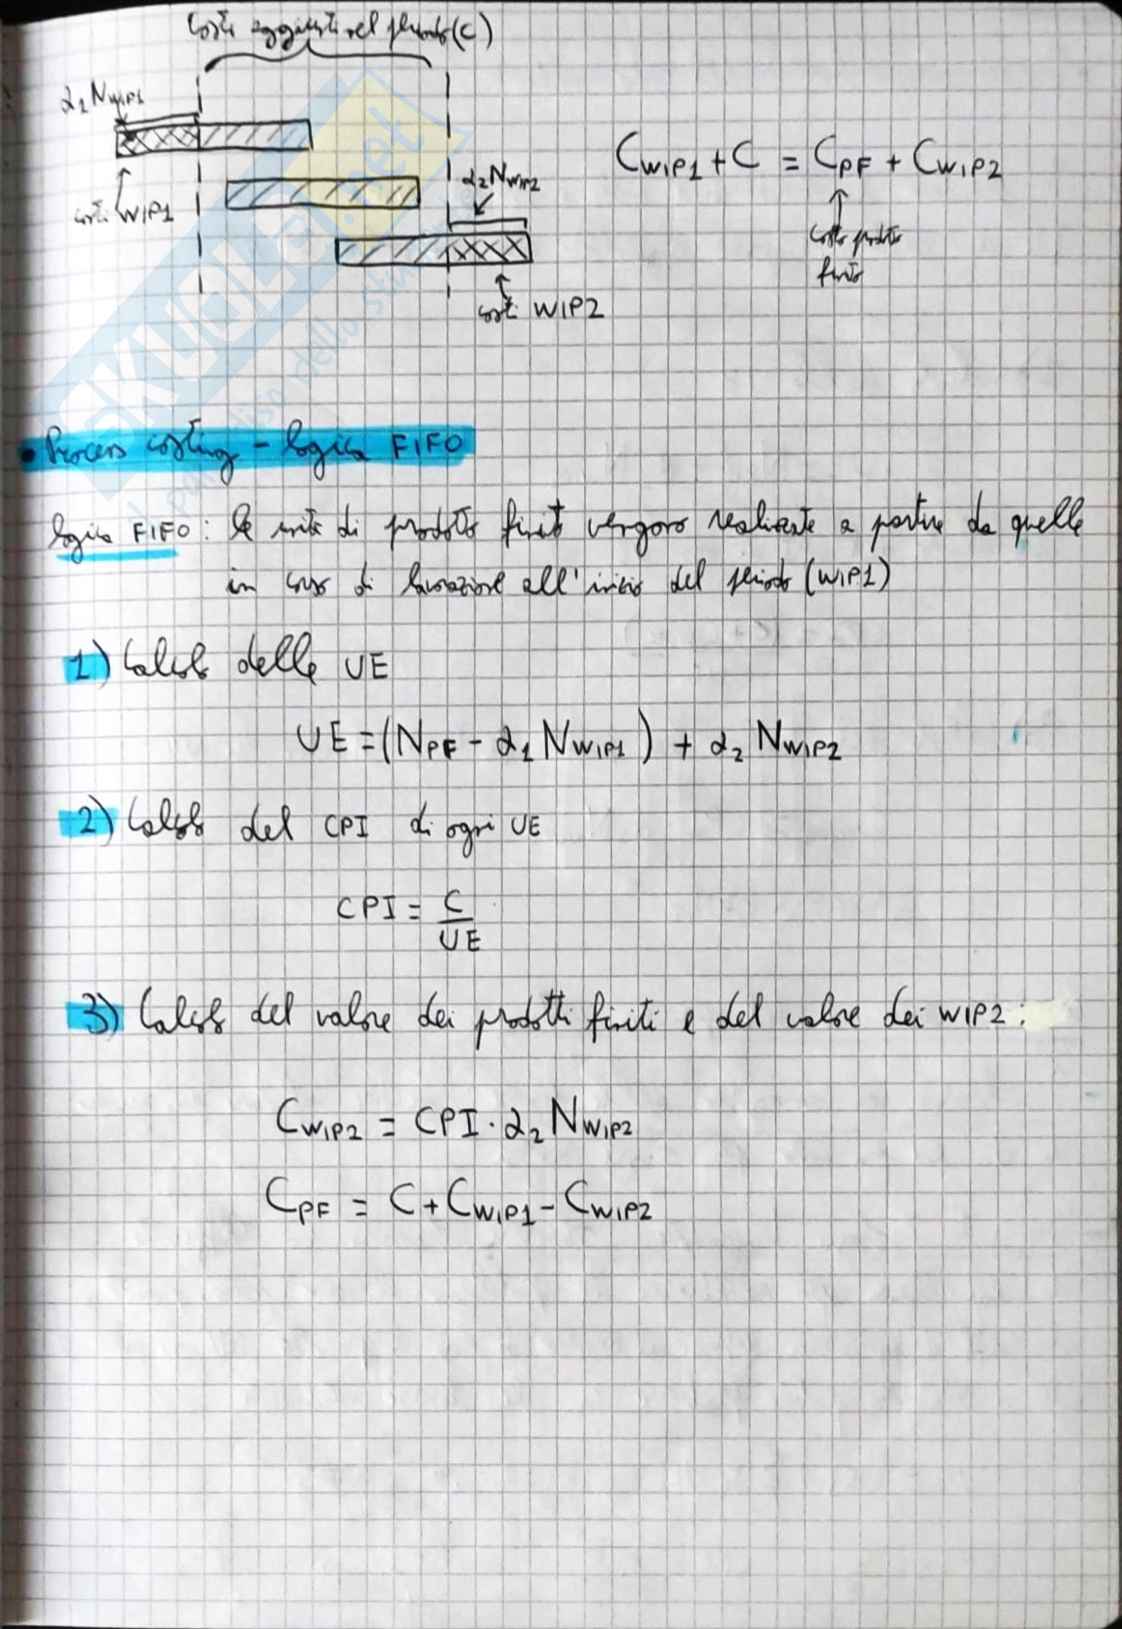 Costi aggiunti nel periodo (C)
α₁NWIP1
costi WIP1
α₂NWIP2
costi WIP2
CWIP1 + C = CPF + CWIP2
costo prodotto
finito
SKUOLA.net
il paradiso dello stu
• Process costing - logica FIFO
logica FIFO: le unità di prodotto finito vengono realizzate a partire da quelle
in corso di lavorazione all'inizio del periodo (WIP1)
1) Calcolo delle UE
UE = (NPF - α₁ NWIP1) + α₂ NWIP2
2) Calcolo del CPI di ogni UE
CPI = C/UE
3) Calcolo del valore dei prodotti finiti e del valore dei WIP2:
CWIP2 = CPI · α₂ NWIP2
CPF = C + CWIP1 - CWIP2